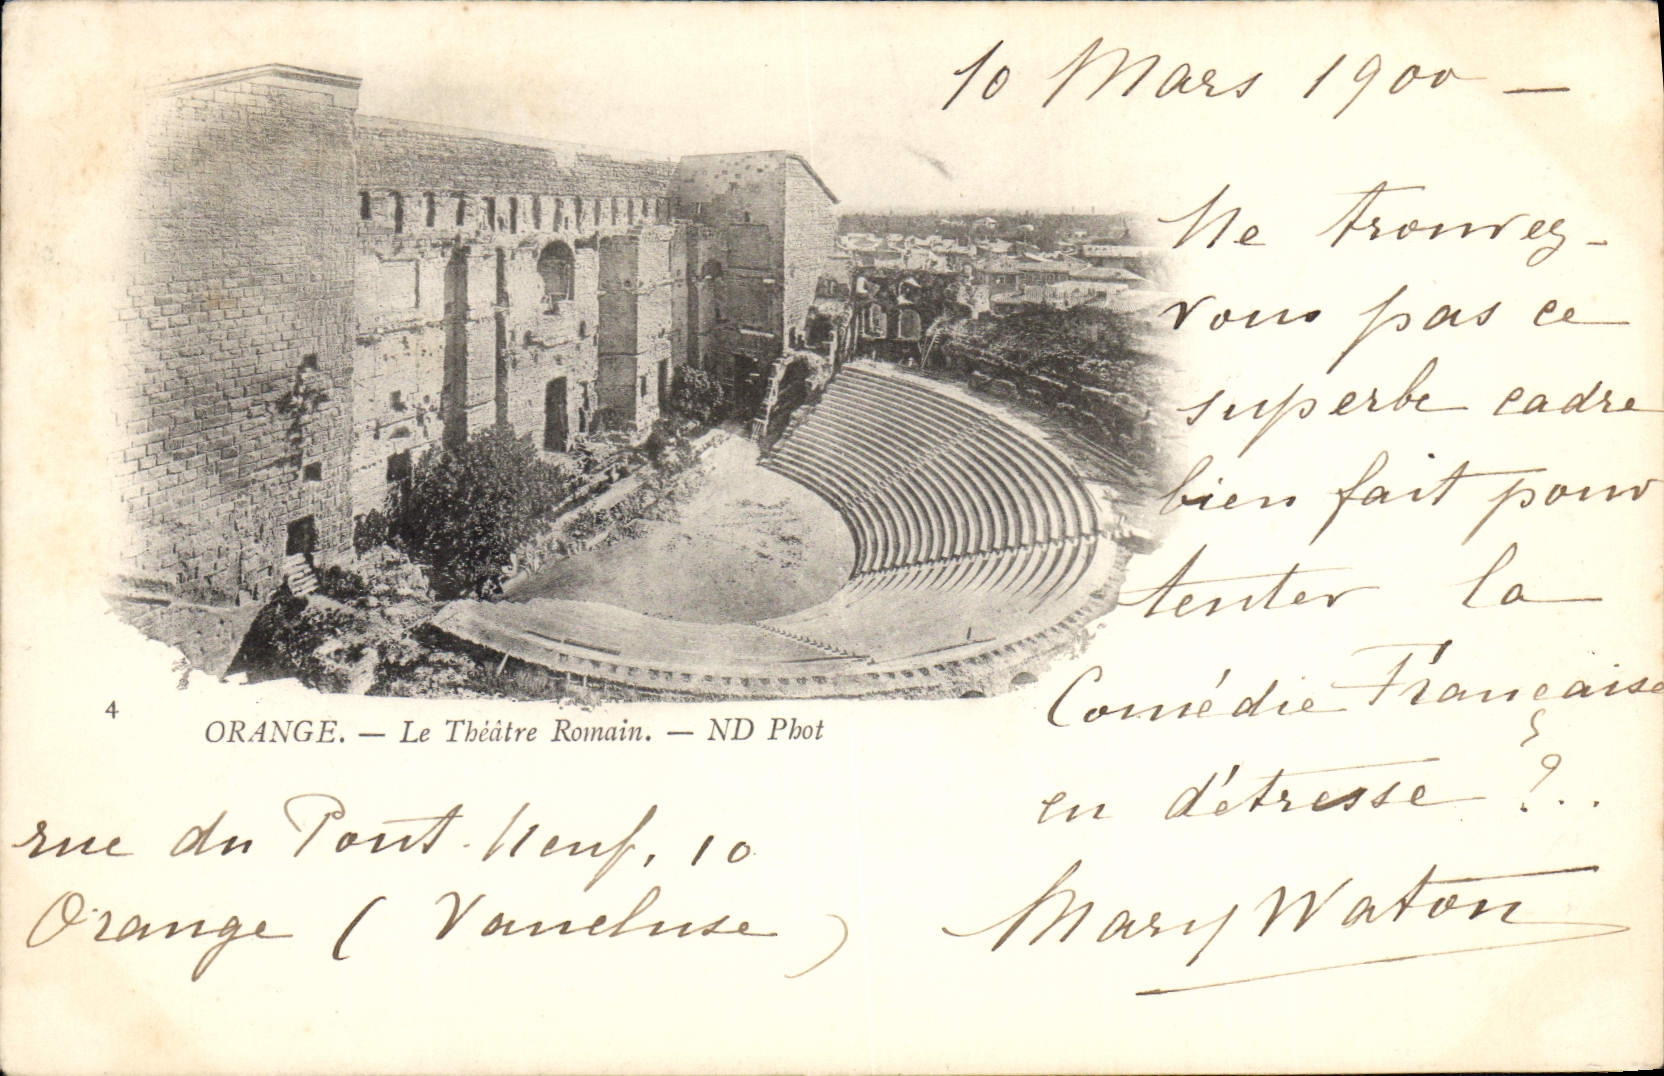 10 Mars 1900 —
Ne trouvez-
vous pas ce
superbe cadre
bien fait pour
tenter la
Comédie Française
en détresse ?..
Mary Waton
4
ORANGE. — Le Théâtre Romain. — ND Phot
rue du Pont-Neuf, 10
Orange (Vaucluse)